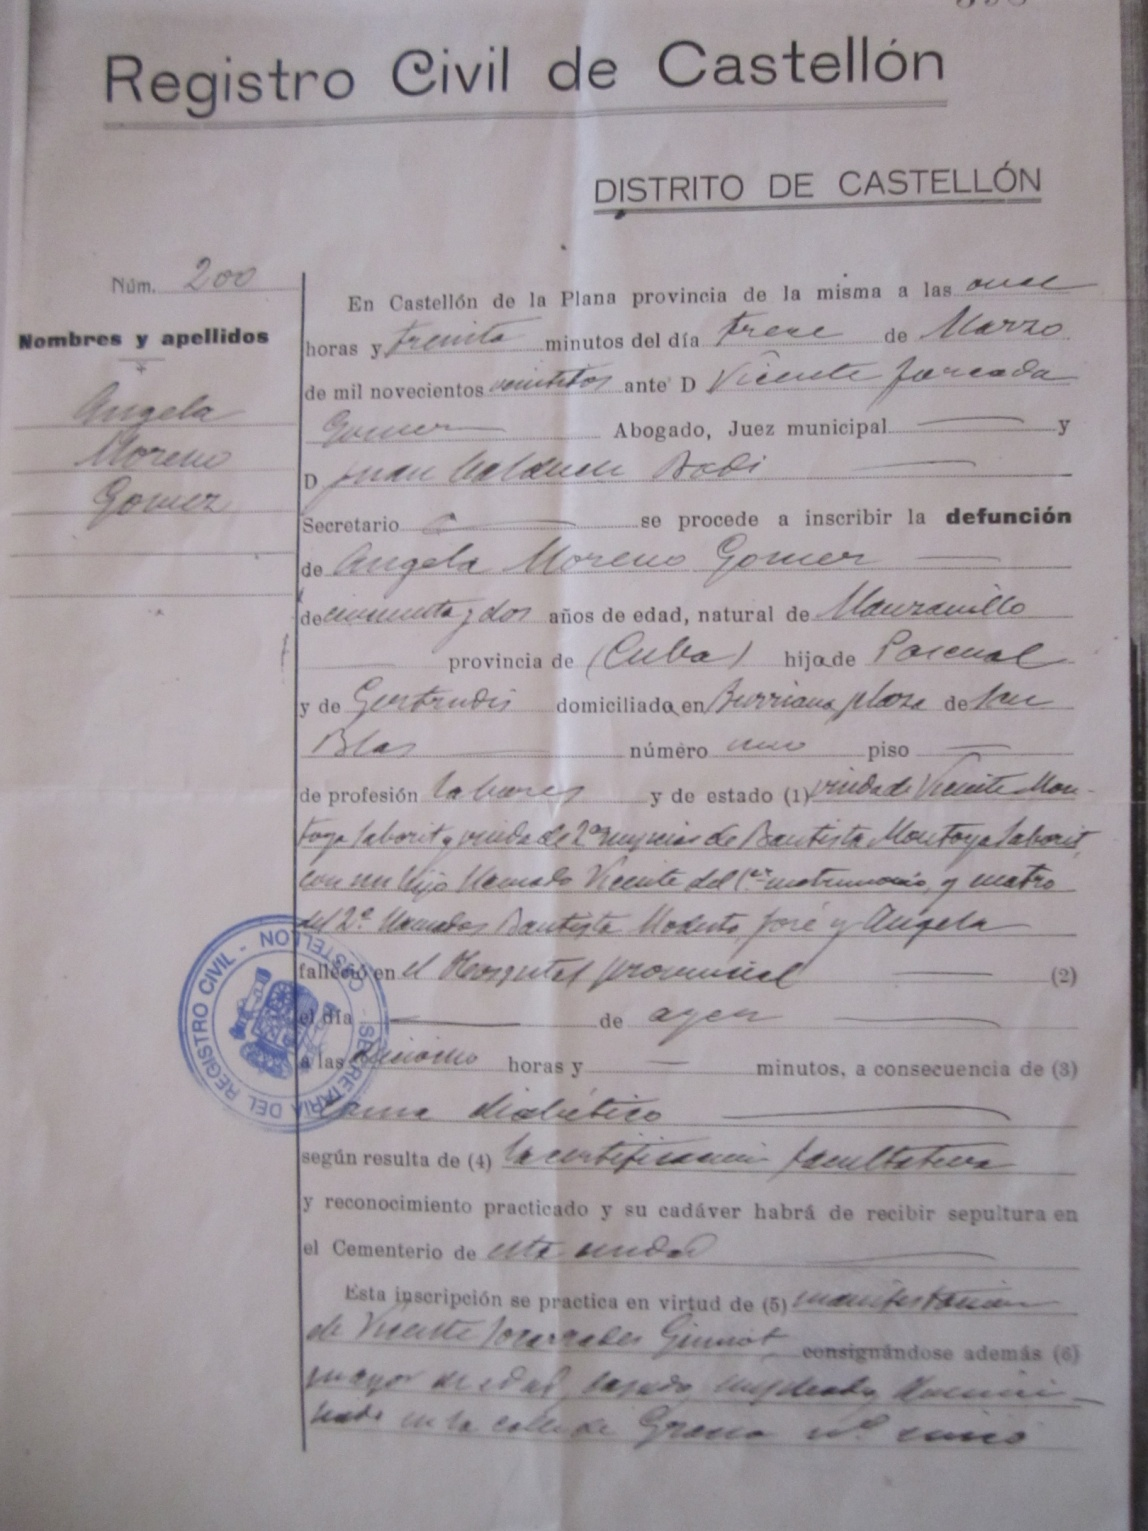 Registro Civil de Castellón
DISTRITO DE CASTELLÓN
Núm. 200
Nombres y apellidos
Angela
Moreno
Gomez
En Castellón de la Plana provincia de la misma a las once
horas y treinta minutos del día trece de Marzo
de mil novecientos veintidos ante D Vicente Forcada
Gomez Abogado, Juez municipal y
D Juan Bodi
Secretario se procede a inscribir la defunción
de Angela Moreno Gomez
de cincuenta y dos años de edad, natural de Manzanillo
provincia de (Cuba) hija de Pascual
y de Gertrudis domiciliada en Burriana plaza de San
Blas número uno piso
de profesión labores y de estado (1) viuda de Vicente Mon-
toya Saborit y viuda de 2as nupcias de Bautista Montoya Saborit
con un hijo llamado Vicente del 1er matrimonio, y cuatro
del 2º llamados Bautista Modesto, José y Angela
falleció en el Hospital provincial (2)
el día de ayer
a las horas y minutos, a consecuencia de (3)
coma diabético
según resulta de (4) la certificacion facultativa
y reconocimiento practicado y su cadáver habrá de recibir sepultura en
el Cementerio de esta ciudad
Esta inscripción se practica en virtud de (5) manifestacion
de Vicente consignándose además (6)
mayor de edad, casado, empleado, domici-
liado en la calle de nº cinco
SECRETARIA DEL REGISTRO CIVIL - CASTELLON -